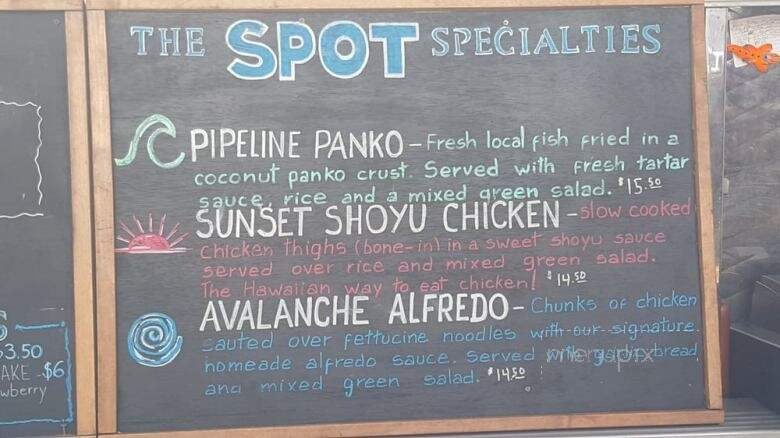 THE SPOT SPECIALTIES
PIPELINE PANKO - Fresh local fish fried in a
coconut panko crust. Served with fresh tartar
sauce, rice and a mixed green salad. $15.50
SUNSET SHOYU CHICKEN - slow cooked
chicken thighs (bone-in) in a sweet shoyu sauce
served over rice and mixed green salad.
The Hawaiian way to eat chicken! $14.50
AVALANCHE ALFREDO - Chunks of chicken
sauted over fettucine noodles with our signature
homeade alfredo sauce. Served with garlic bread
and mixed green salad. $14.50
3.50
AKE - $6
wberry